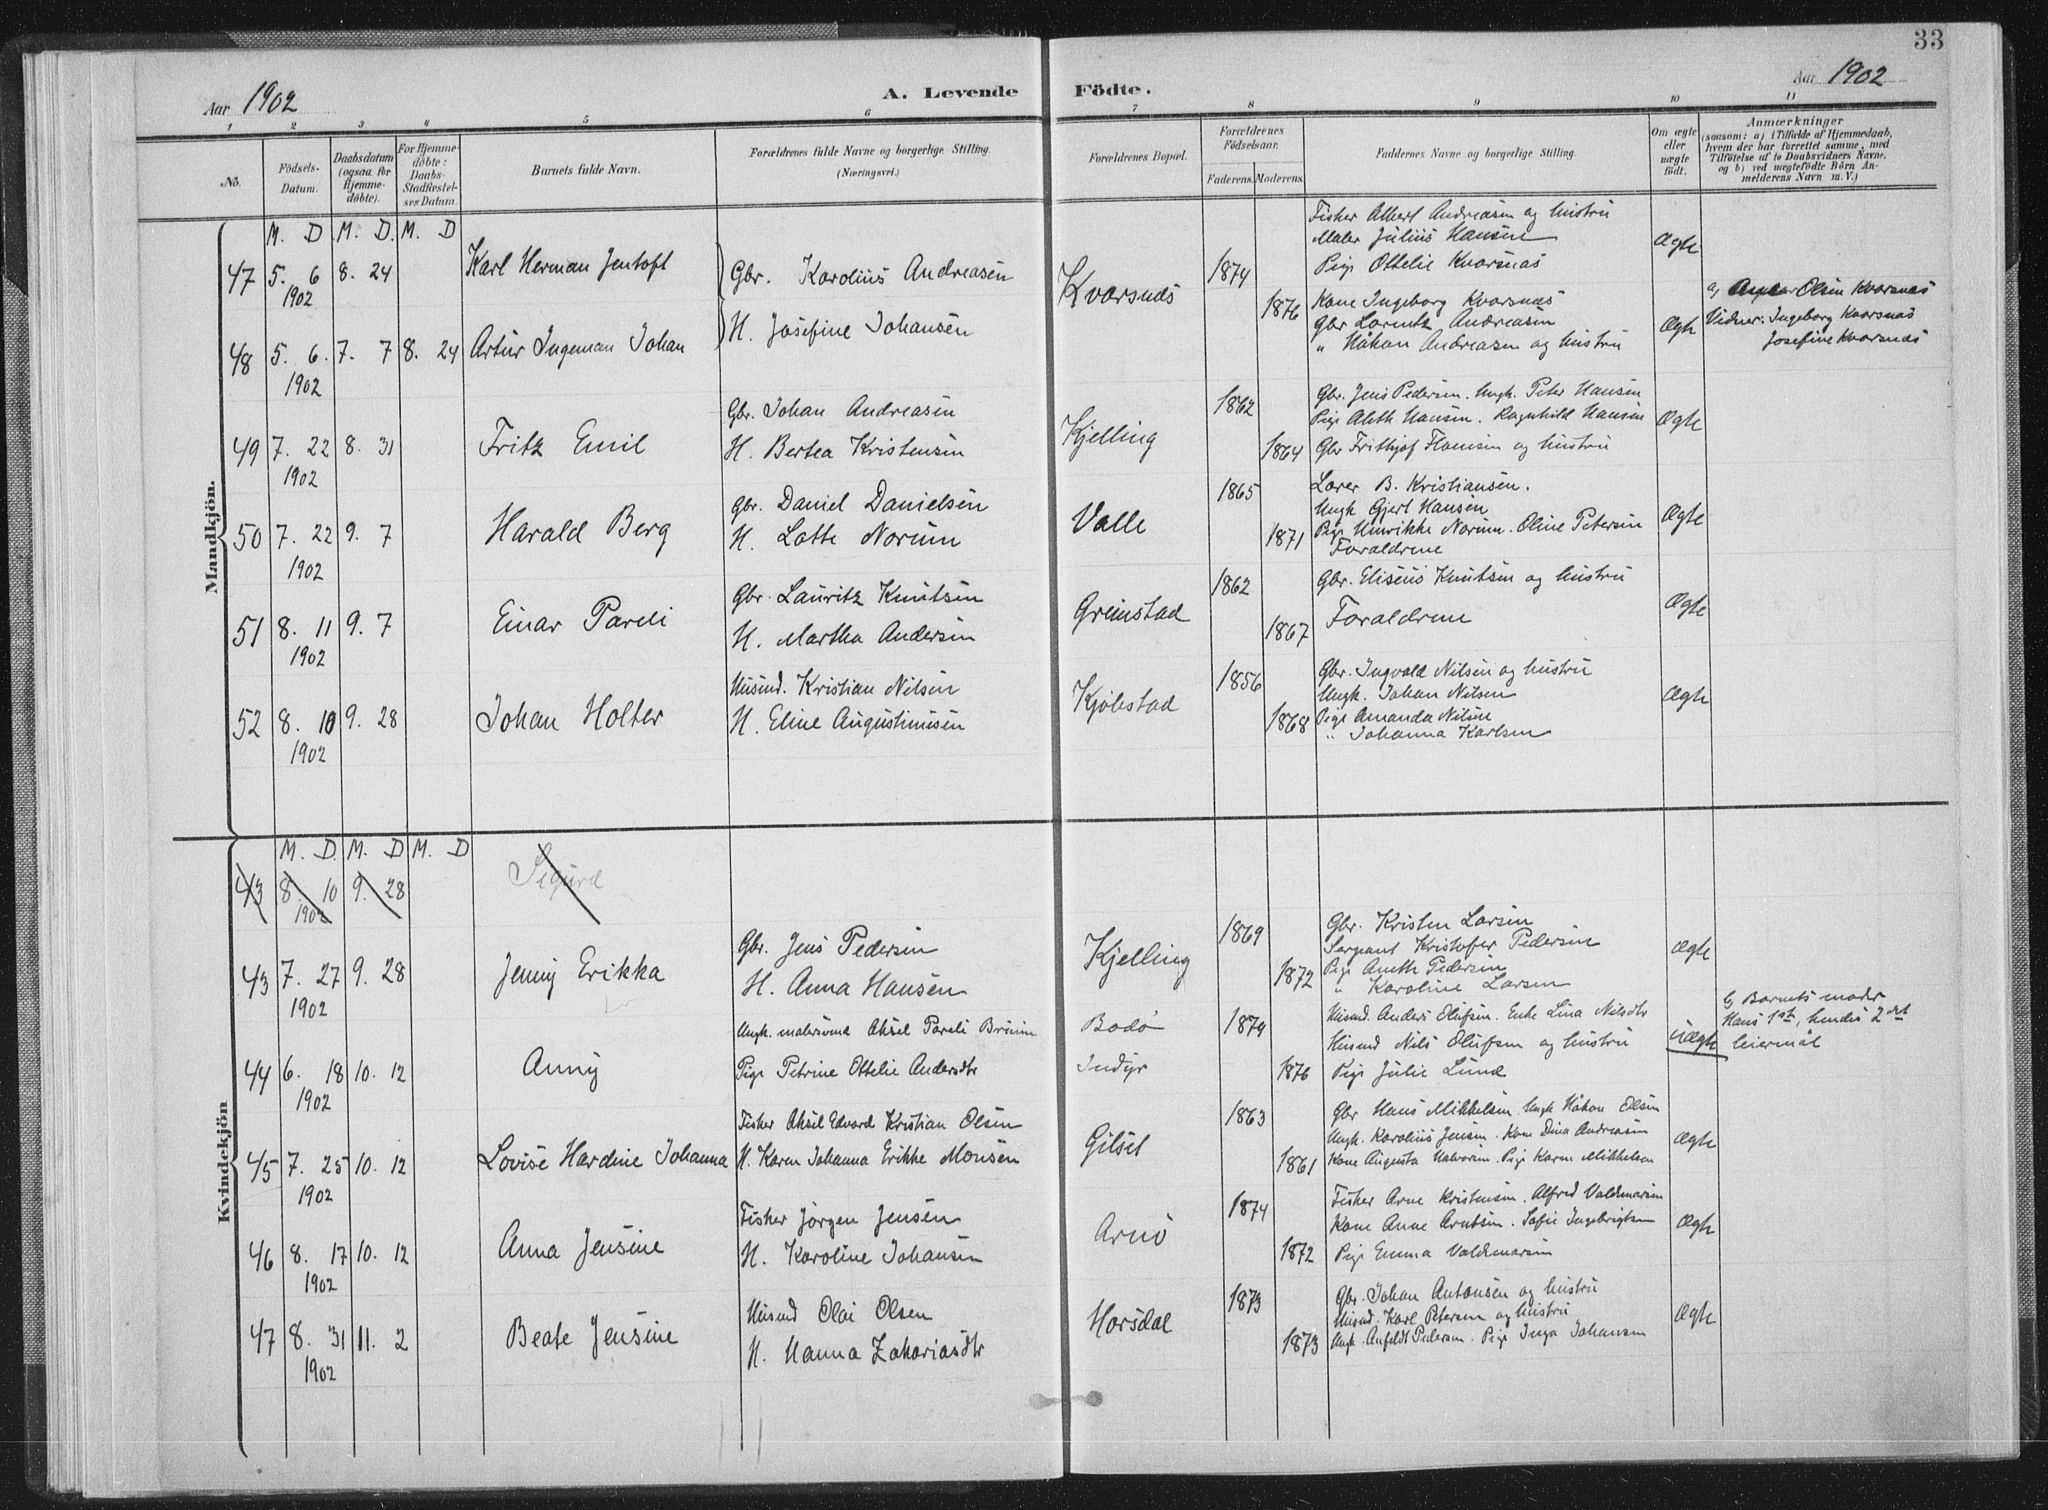 33
Aar 1902
A. Levende Födte.
Aar 1902
1 2 3 4 5 6 7 8 9 10 11
No.
Födsels-Datum.
Daabsdatum (ogsaa for Hjemmedøbte).
For Hjemmedöbte: Daabs-Stadfestelses Datum.
Barnets fulde Navn.
Forældrenes fulde Navne og borgerlige Stilling. (Næringsvei.)
Forældrenes Bopæl.
Forældrenes Födselsaar.
Faderens. Moderens.
Faddernes Navne og borgerlige Stilling.
Om ægte eller uægte födt.
Anmærkninger (saasom: a) i Tilfælde af Hjemmedaab, hvem der har forrettet samme, med Tilföielse af to Daabsvidners Navne, og b) ved uægtefödte Börn Anmelderens Navn m. V.)
Mandkjön.
M. D. M. D. M. D
47 5. 6 1902 8. 24 Karl Herman Jentoft
Gbr. Karolius Andreasen
H. Josefine Johansen
Kvarsnes 1874 1876
Fisker Albert Andreasen og hustru
Maler Julius Hansen
Pige Ottelie Kvarsnæs
Ægte
48 5. 6. 1902 7. 7 8. 24 Artur Ingeman Johan
Kone Ingeborg Kvarsnæs
Gbr Lorentz Andreasen
" Håkon Andreasen og hustru
Ægte
a) Olsen Kvarsnæs
Vidner: Ingeborg Kvarsnæs
Josefine Kvarsnæs
49 7. 22 1902 8. 31 Fritz Emil
Gbr. Johan Andreasen
H. Bertea Kristensen
Kjelling 1862 1864
Gbr. Jens Pedersen. Ungk. Peter Hansen
Pige Aleth Hansen. Ragnhild Hansen
Gbr Frithjof Hansen og hustru
Ægte
50 7. 22 1902 9. 7 Harald Berg
Gbr. Daniel Danielsen
H. Lotte Norum
Valle 1865 1871
Lærer B. Kristiansen.
Ungk Gjert Hansen
Pige Henrikke Norum. Oline Petersen
Forældrene
Ægte
51 8. 11 1902 9. 7 Einar Pareli
Gbr. Lauritz Knutsen
H. Martha Andersen
Grimstad 1862 1867
Gbr. Eliseus Knutsen og hustru
Forældrene
Ægte
52 8. 10 1902 9. 28 Johan Holter
Husmd. Kristian Nilsen
H. Eline Augustinusen
Kjølstad 1856 1868
Gbr. Ingvald Nilsen og hustru
Ungk. Johan Nilsen
Pige Amanda Nilsen
" Johanna Karlsen
Ægte
Kvindekjön
M. D. M. D M. D
43 8. 10 1902 9. 28 Sigurd
43 7. 27 1902 9. 28 Jenny Erikka
Gbr. Jens Pedersen
H. Anna Hansen
Kjelling 1869 1872
Gbr. Kristen Larsen
Sergeant Kristofer Pedersen
Pige Aneth Pedersen
" Karoline Larsen
Ægte
44 6. 18 1902 10. 12 Anny
Ungk. malersvend Aksel Pareli Bruun
Pige Petrine Ottelie Andersdtr
Bodø
Indyr
1879 1876
Husmd. Anders Olufsen. Enke Lina Nilsdtr
Husmd Nils Olufsen og hustru
Pige Julie Lund
uægte
b) Barnets moder
Hans 1st, hendes 2det
leiermål
45 7. 25 1902 10. 12 Lovise Hardine Johanna
Fisker Aksel Edvard Kristian Olsen
H. Karen Johanna Erikke Monsen
Gilset 1863 1861
Gbr Hans Mikkelsen. Ungk Håkon Olsen
Ungk. Karolius Jensen. Kone Dina Andreasen
Kone Augusta Halvorsen. Pige Karen Mikkelsen
Ægte
46 8. 17 1902 10. 12 Anna Jensine
Fisker Jørgen Jensen
H. Karoline Johansen
Arnø 1874 1872
Fisker Arne Kristensen. Alfred Valdemarsen
Kone Anne Arntsen. Sofie Ingebrigtsen
Pige Emma Valdemarsen
Ægte
47 8. 31 1902 11. 2 Beate Jensine
Husmd Olai Olsen
H. Hanna Zakariasdtr
Horsdal 1873 1873
Gbr. Johan Antonsen og hustru
Husmd. Karl Petersen og hustru
Ungk. Anfeldt Pedersen. Pige Inga Johansen
Ægte